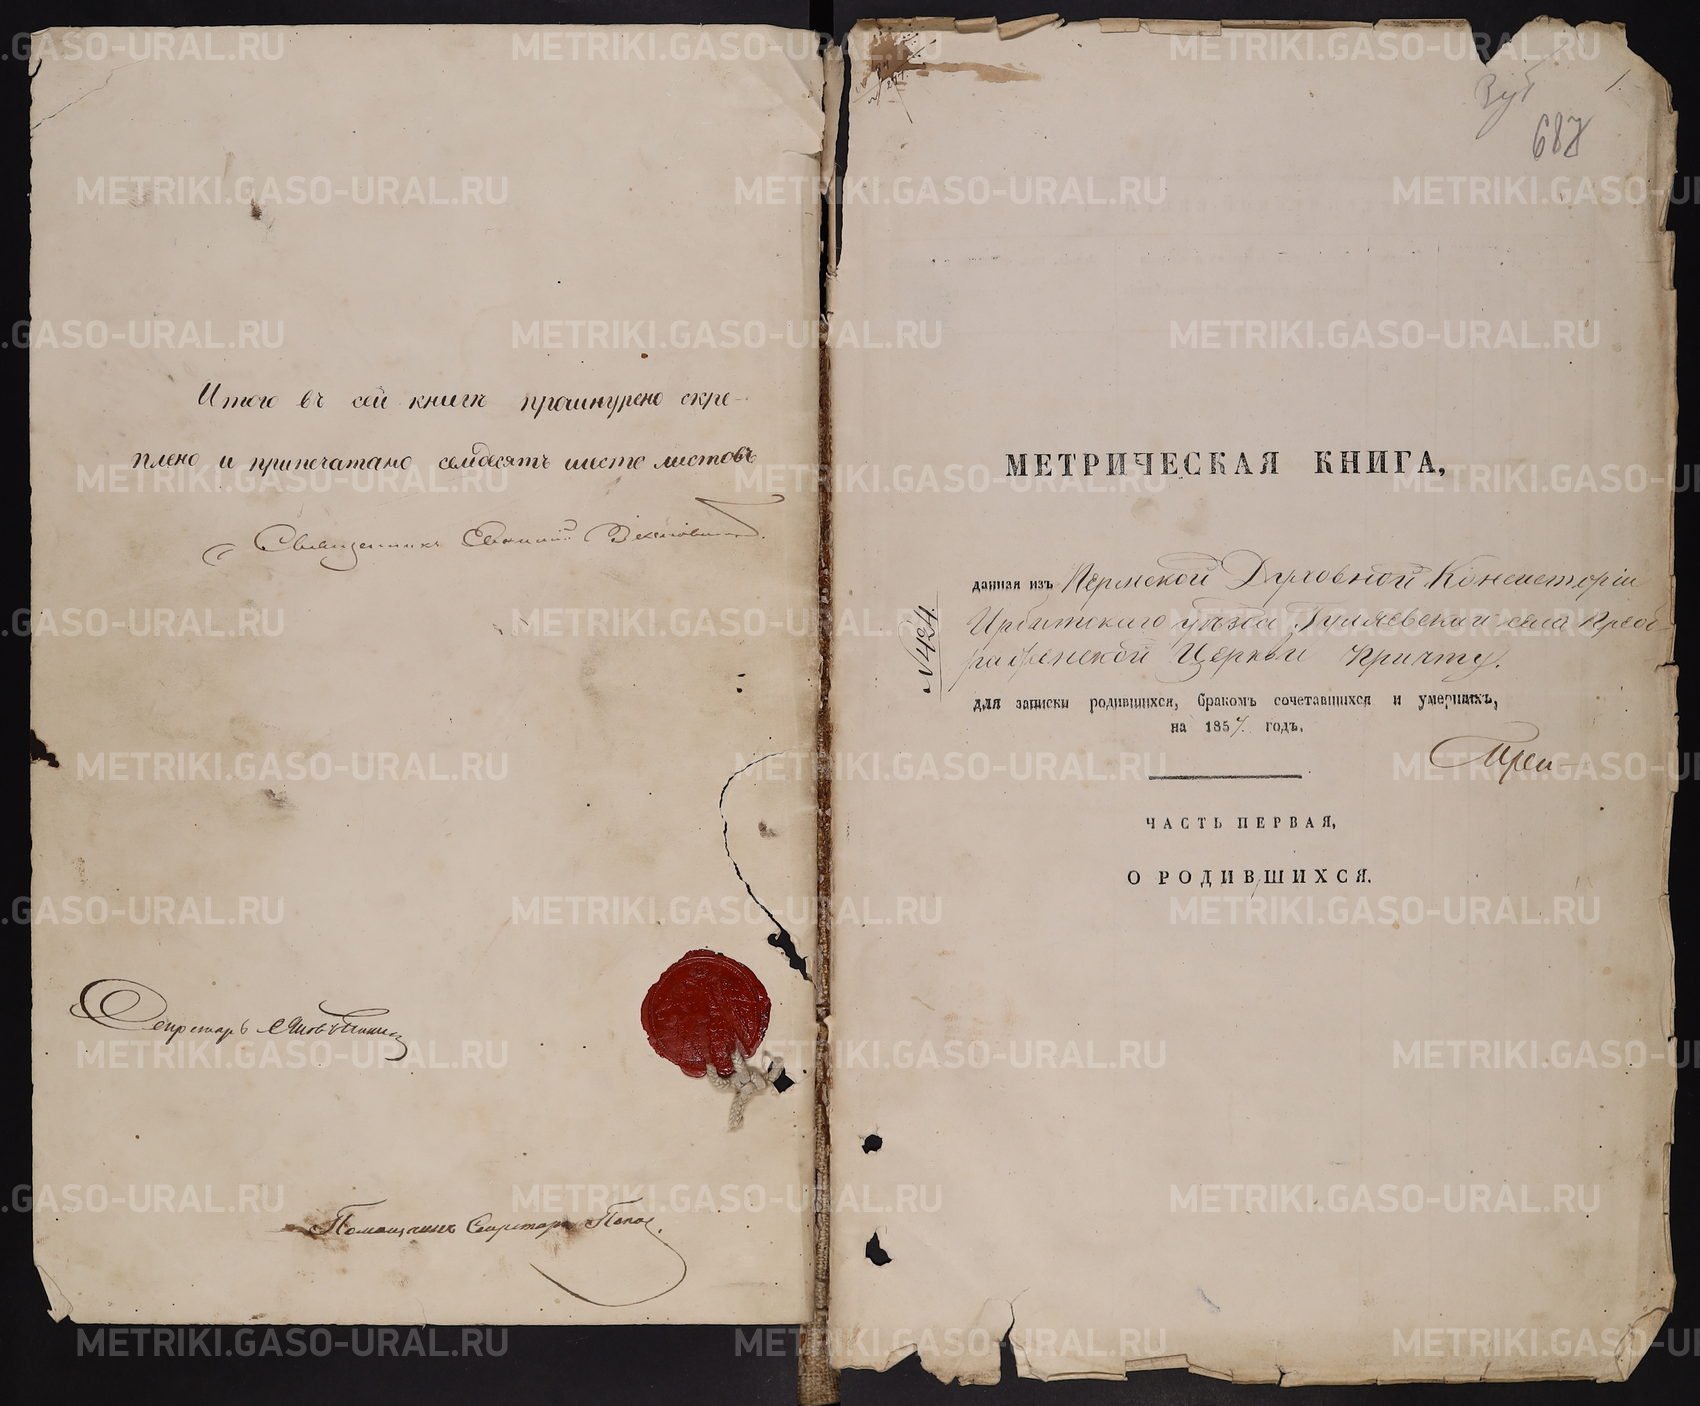 Итого въ сей книгѣ прошнурено скре-
плено и припечатано семдесятъ шесть листовъ
Священникъ Евгеній
Секретарь
Помощникъ Секретаря Попов
1.
687
МЕТРИЧЕСКАЯ КНИГА,
данная изъ Пермской Духовной Консисторіи
Ирбитскаго уѣзда Гуляевскаго села Преоб-
раженской Церкви Причту.
№ 424.
для записки родившихся, бракомъ сочетавшихся и умершихъ,
на 1857. годъ.
ЧАСТЬ ПЕРВАЯ,
О РОДИВШИХСЯ.
METRIKI.GASO-URAL.RU